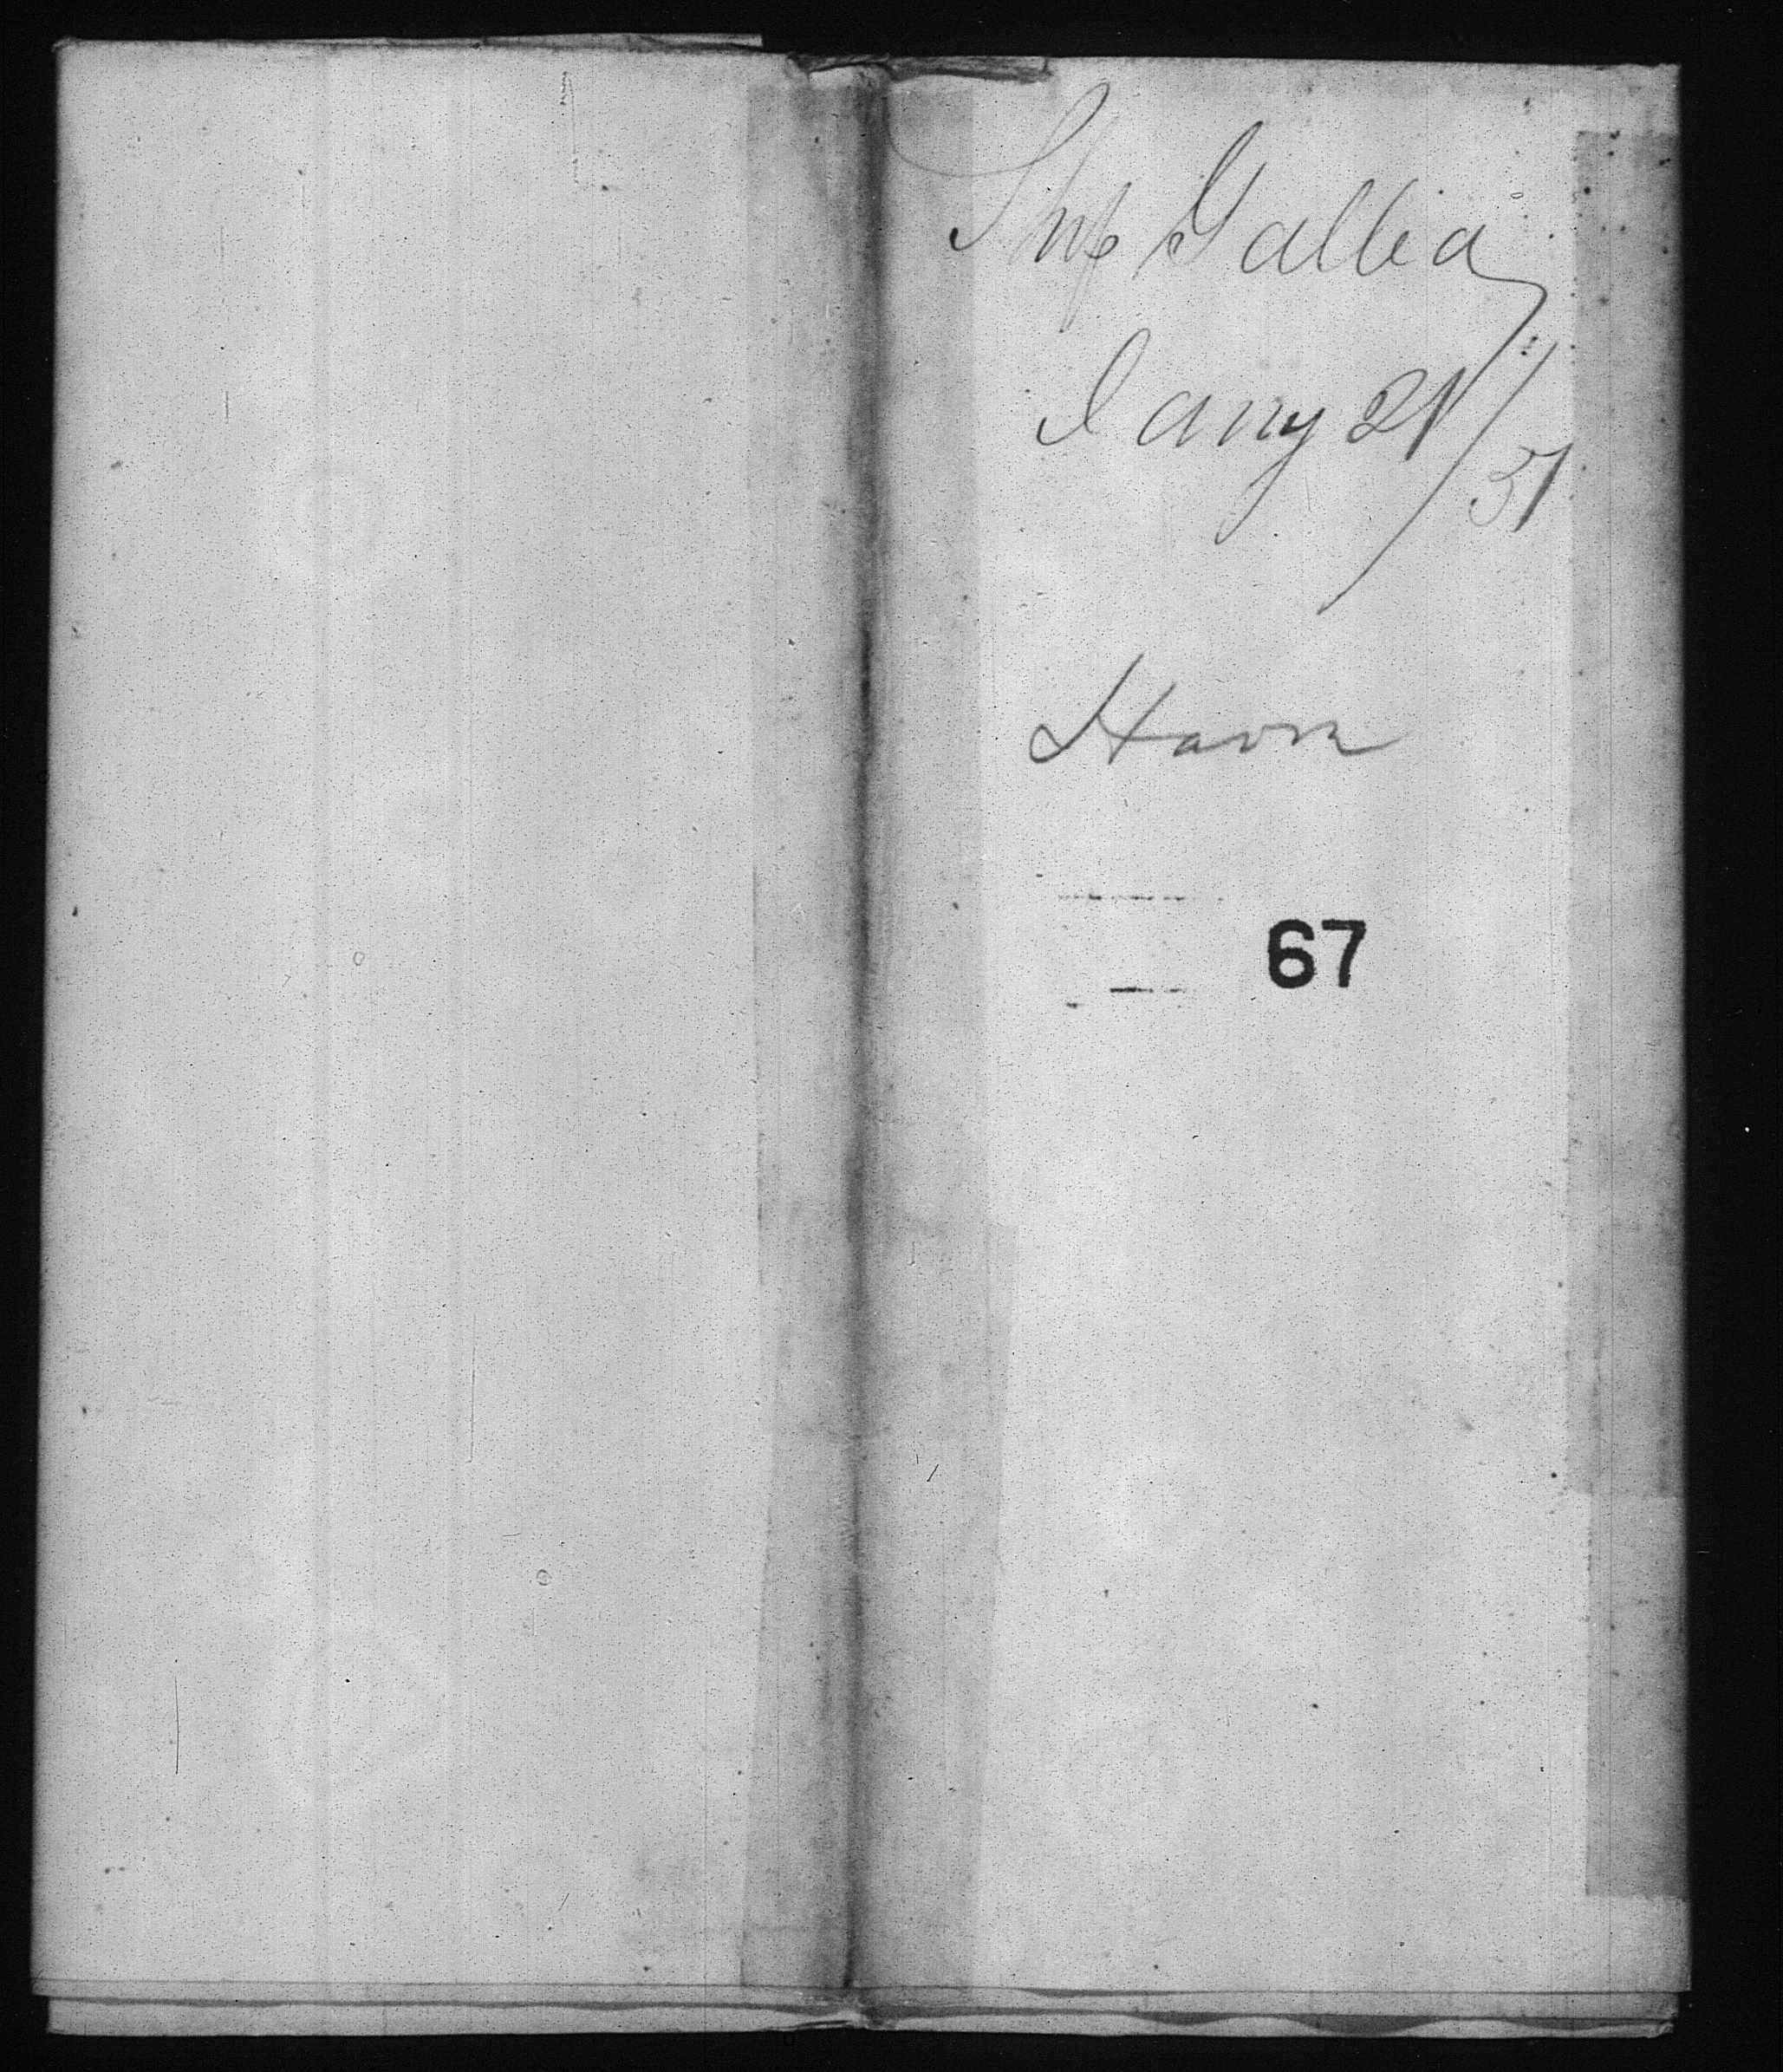 Ship Gallia
Jany 21/51
Havre
67